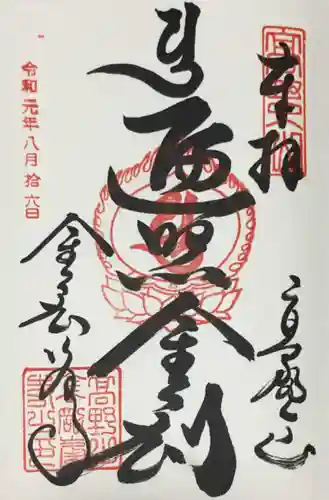 奉拝
高野山
遍照金剛
金剛峯寺
令和元年八月拾六日
高野山
金剛峯
寺之印